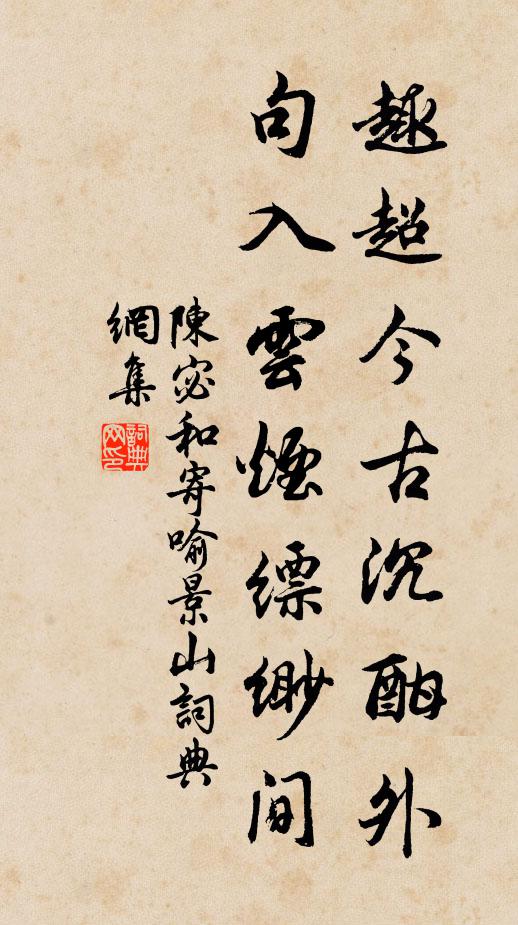 趣超今古沉酣外
句入雲煙縹緲間
陳宓和寄喻景山詞典
網集
詞典
网印